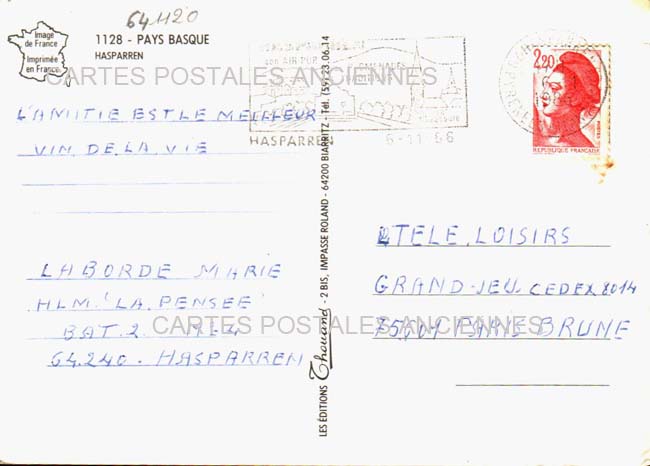 641120
Image
de France
Imprimée
en France
1128 - PAYS BASQUE
HASPARREN
CARTES POSTALES ANCIENNES
L'AMITIE EST LE MEILLEUR
VIN DE LA VIE
LABORDE MARIE
HLM. 'LA PENSEE'
BAT. 2
64.240. HASPARREN
CARTES POSTALES ANCIENNES
LES ÉDITIONS Thouand - 2 BIS, IMPASSE ROLAND - 64200 BIARRITZ - Tél. (59) 23.06.14
son AIR PUR
HASPARREN
6-11
2,20
REPUBLIQUE FRANÇAISE
TELE. LOISIRS
GRAND-JEU CEDEX 2014
BRUNE